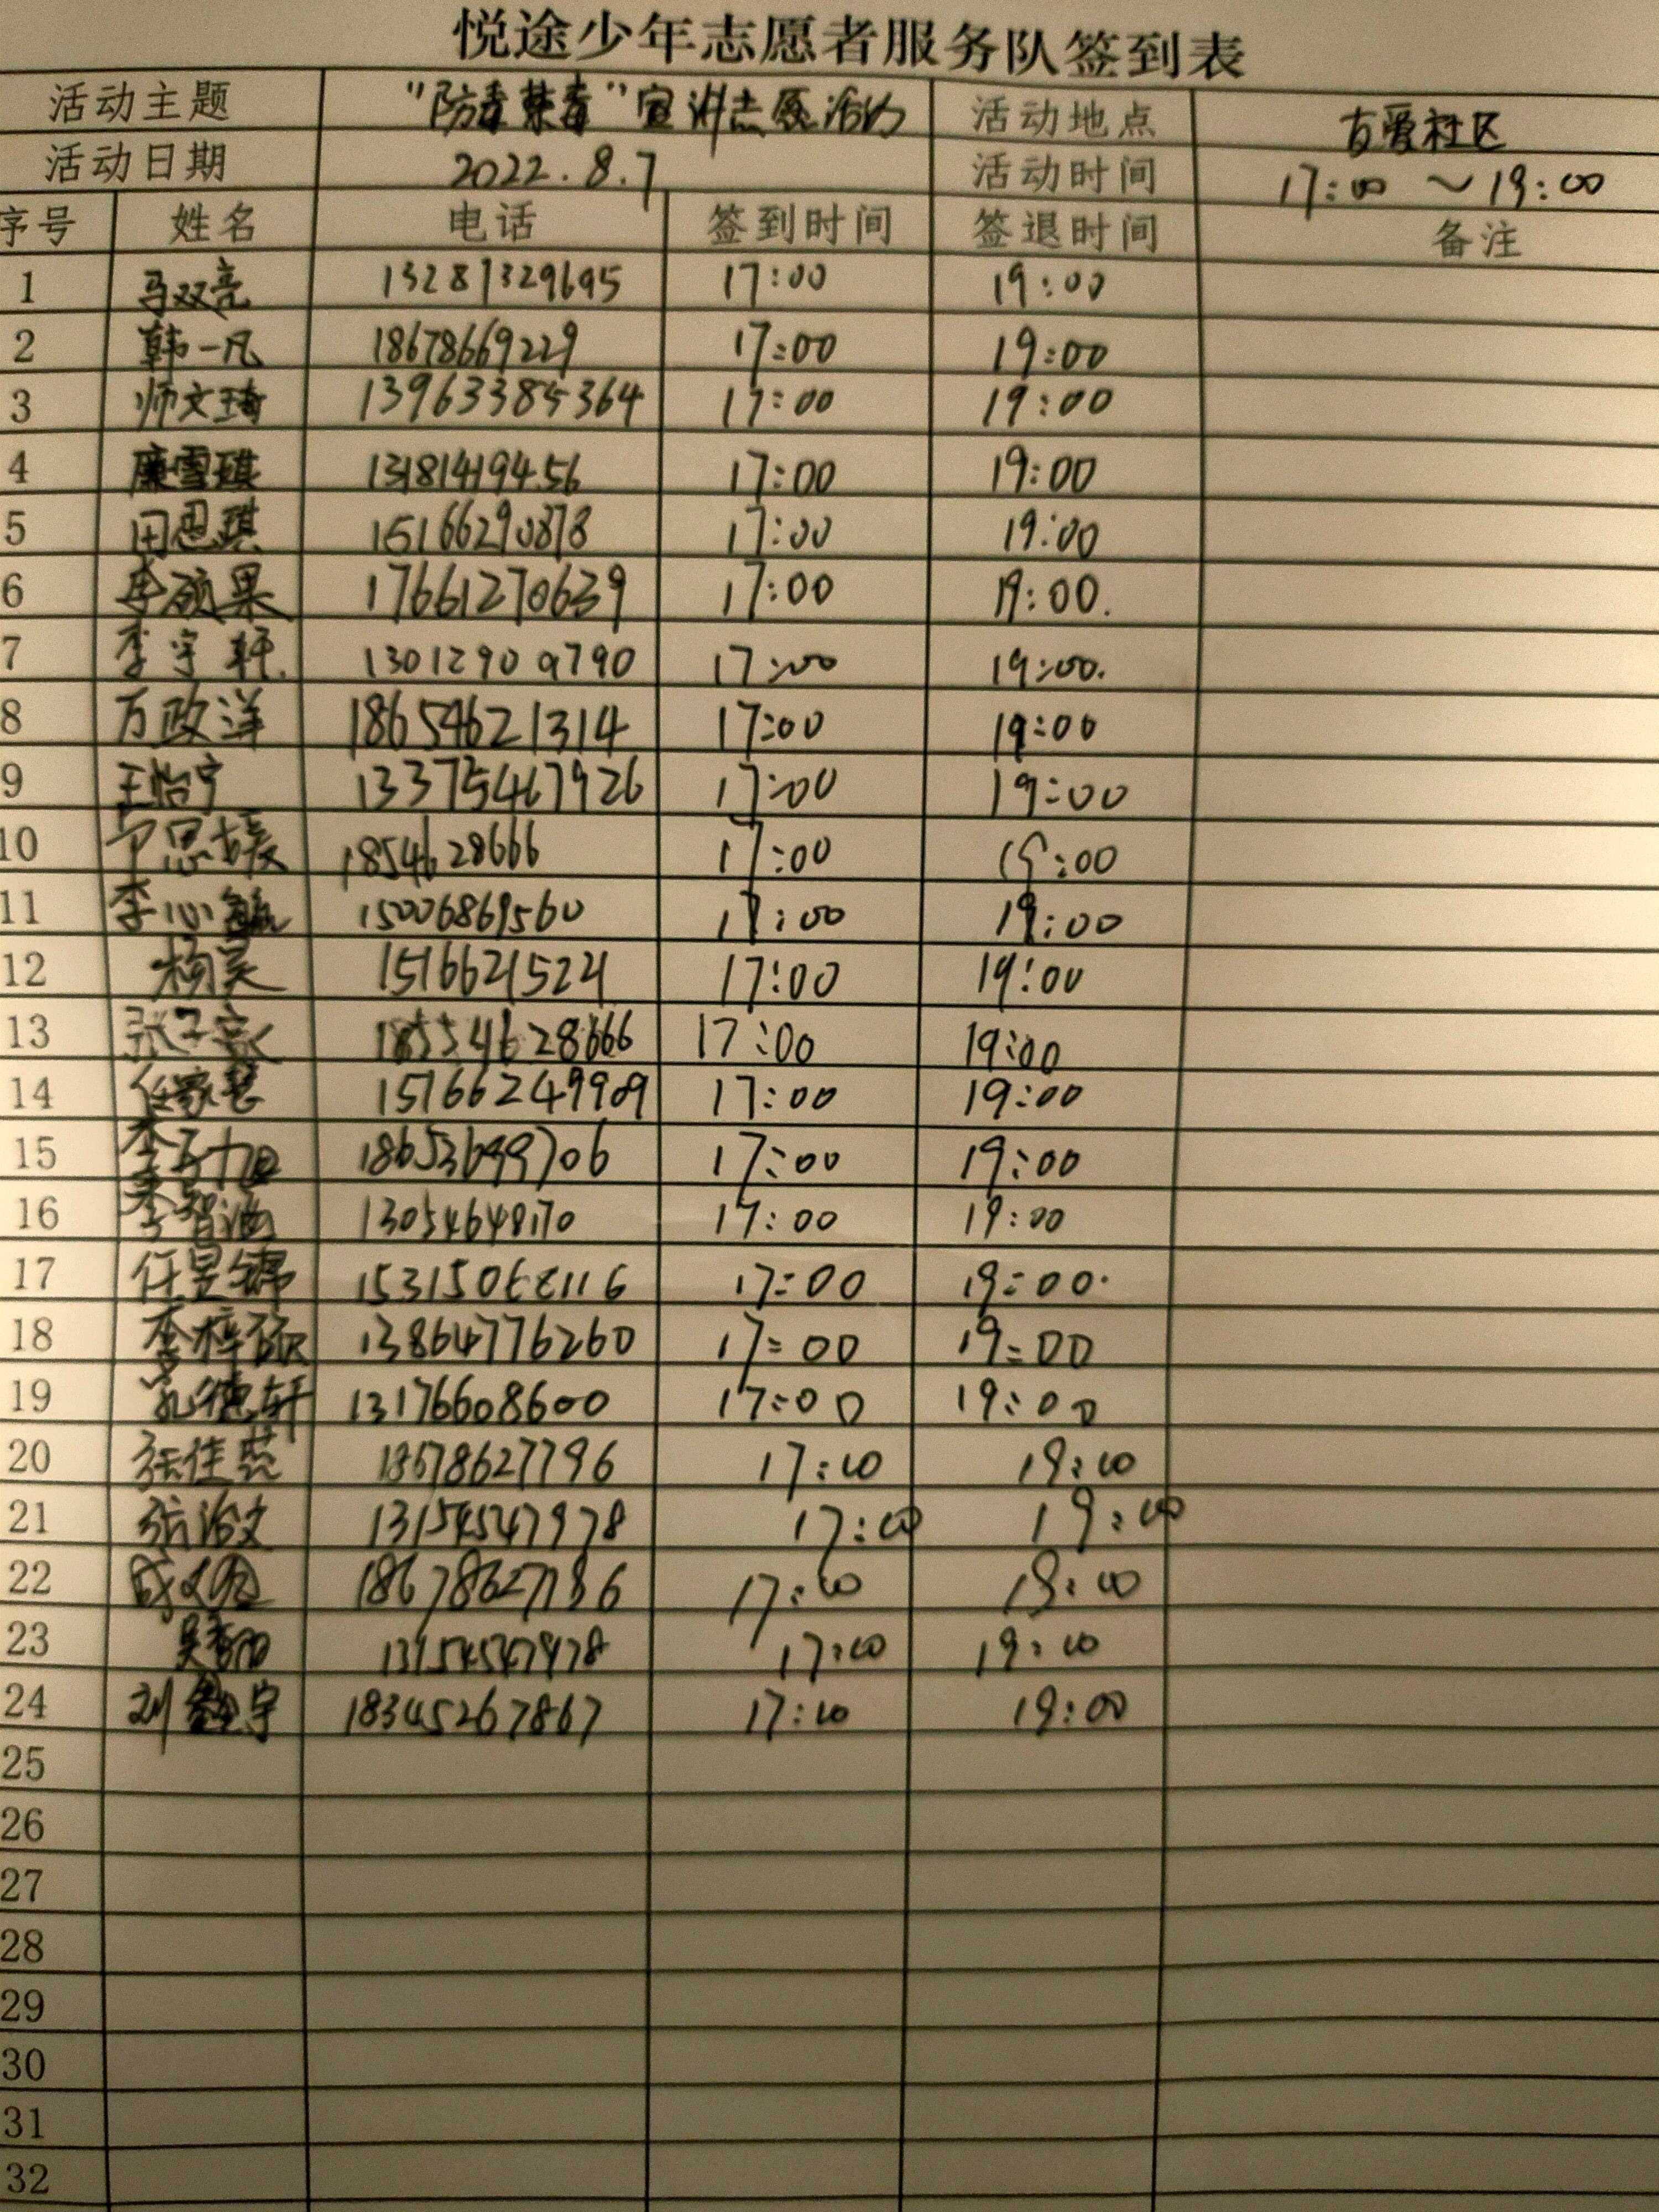 悦途少年志愿者服务队签到表
活动主题 "防毒禁毒"宣讲志愿活动 活动地点 友爱社区
活动日期 2022.8.7 活动时间 17:00 ~19:00
序号 姓名 电话 签到时间 签退时间 备注
1 马双亮 13281329695 17:00 19:00
2 韩一凡 18678669229 17:00 19:00
3 师文琦 13963385364 17:00 19:00
4 廉雪琪 13181419456 17:00 19:00
5 田思琪 15166290878 17:00 19:00
6 李硕果 17661270639 17:00 19:00.
7 李宇轩. 13012909790 17:00 19:00.
8 万政洋 18654621314 17:00 19:00
9 王怡宁 13375467926 17:00 19:00
10 1854628666 17:00 19:00
11 李心 15006869560 17:00 19:00
12 杨昊 1516621524 17:00 19:00
13 张子 18554628666 17:00 19:00
14 任家慧 15166249909 17:00 19:00
15 李子旭 18653699706 17:00 19:00
16 李智涵 13054648170 17:00 19:00
17 任昱锦 17:00 19:00.
18 李梓硕 13864776260 17:00 19:00
19 德轩 13176608600 17:00 19:00
20 张佳 18678627796 17:00 19:00
21 张洽文 13154547978 17:00 19:00
22 17:00 19:00
23 吴 13154547978 17:00 19:00
24 刘鑫宇 18345267867 17:00 19:00
25
26
27
28
29
30
31
32